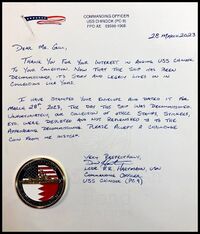 COMMANDING OFFICER
USS CHINOOK (PC-9)
FPO AE 09566-1968
28 MARCH 2023
DEAR MR. GILL,
THANK YOU FOR YOUR INTEREST IN ADDING USS CHINOOK
TO YOUR COLLECTION. NOW THAT THE SHIP HAS BEEN
DECOMMISSIONED, ITS STORY AND LEGACY LIVES ON IN
COLLECTIONS LIKE YOURS.
I HAVE STAMPED YOUR ENVELOPE AND DATED IT FOR
MARCH 28th, 2023, THE DAY THE SHIP WAS DECOMMISSIONED.
UNFORTUNATELY, OUR COLLECTION OF OTHER STAMPS, STICKERS,
ETC. WERE DEPLETED AND NOT REPLENISHED DUE TO THE
APPROACHING DECOMMISSIONING. PLEASE ACCEPT A CHALLENGE
COIN FROM ME INSTEAD.
VERY RESPECTFULLY,
LCDR R.R. HARTMANN, USN
COMMANDING OFFICER,
USS CHINOOK (PC-9)